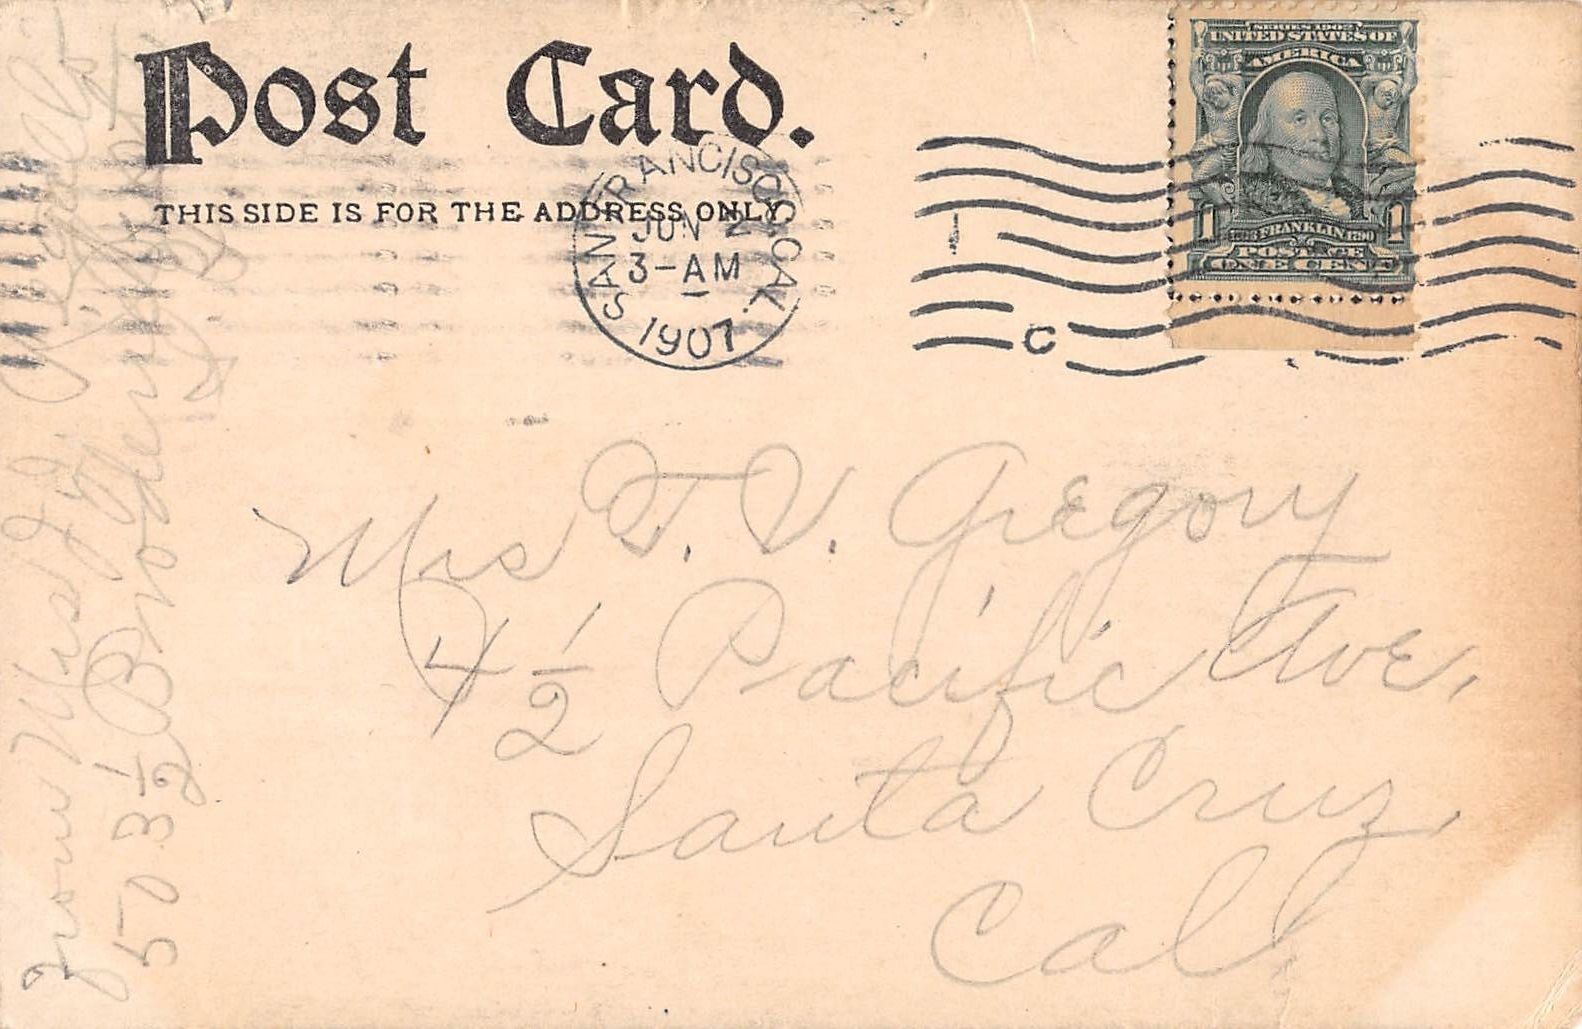 Post Card.
THIS SIDE IS FOR THE ADDRESS ONLY.
SAN FRANCISCO, CAL.
JUN 2
3-AM
1907
C
SERIES 1902
UNITED STATES OF
AMERICA
1 FRANKLIN 1
POSTAGE
ONE CENT
Mrs T. V. Gregory
4 1/2 Pacific Ave.
Santa Cruz,
Cal.
From Mrs J.
503 1/2